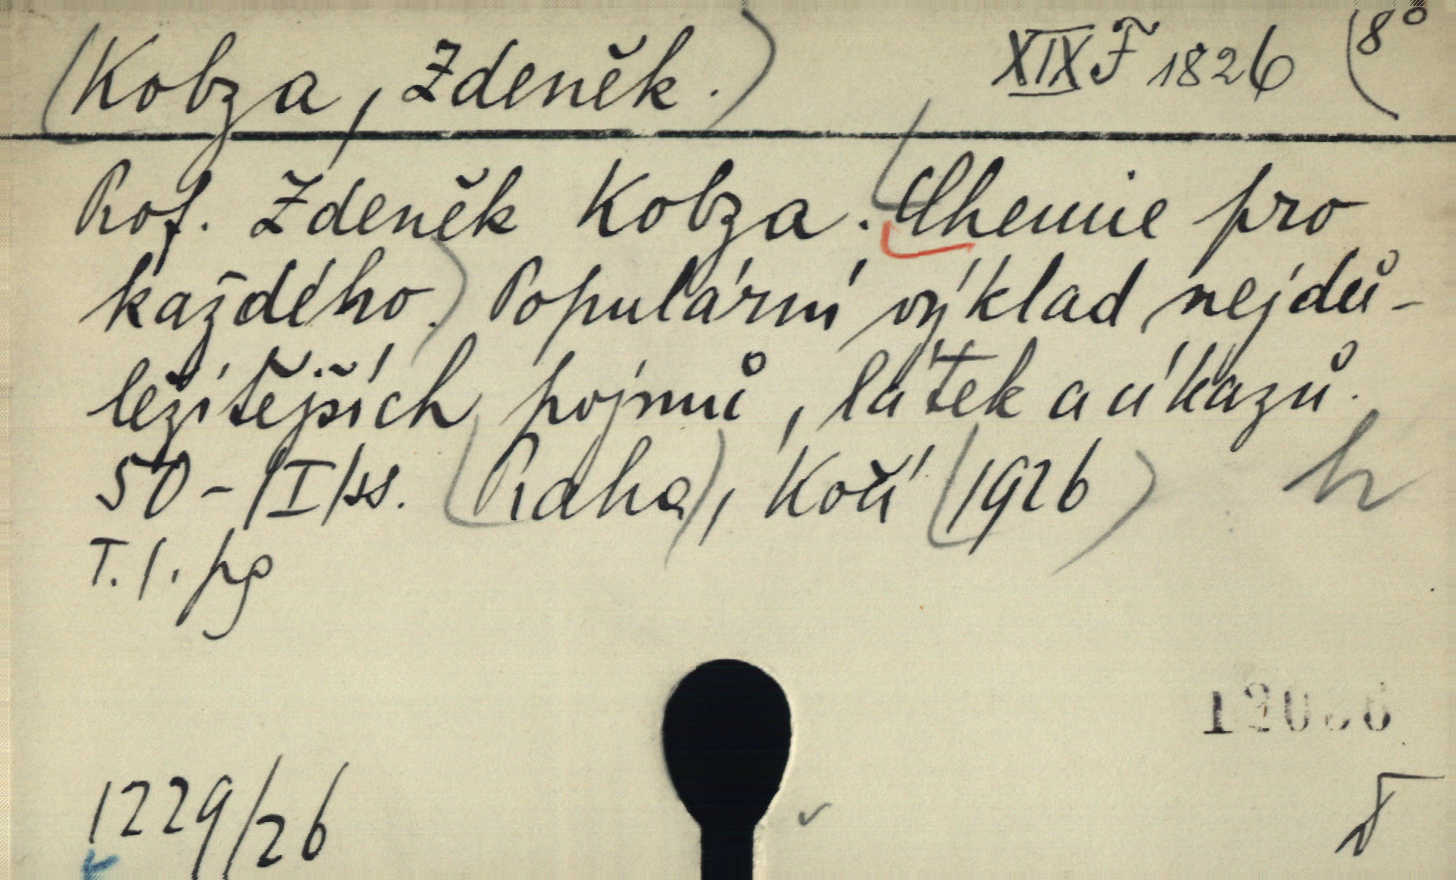 (Kobza, Zdeněk.) XIX F 1826 (8°
Prof. Zdeněk Kobza. Chemie pro
každého.) Populární výklad nejdů-
ležitějších pojmů, látek a úkazů.
50-/I/ss. (Praha), Kočí (1926)
T. l. pg
1229/26